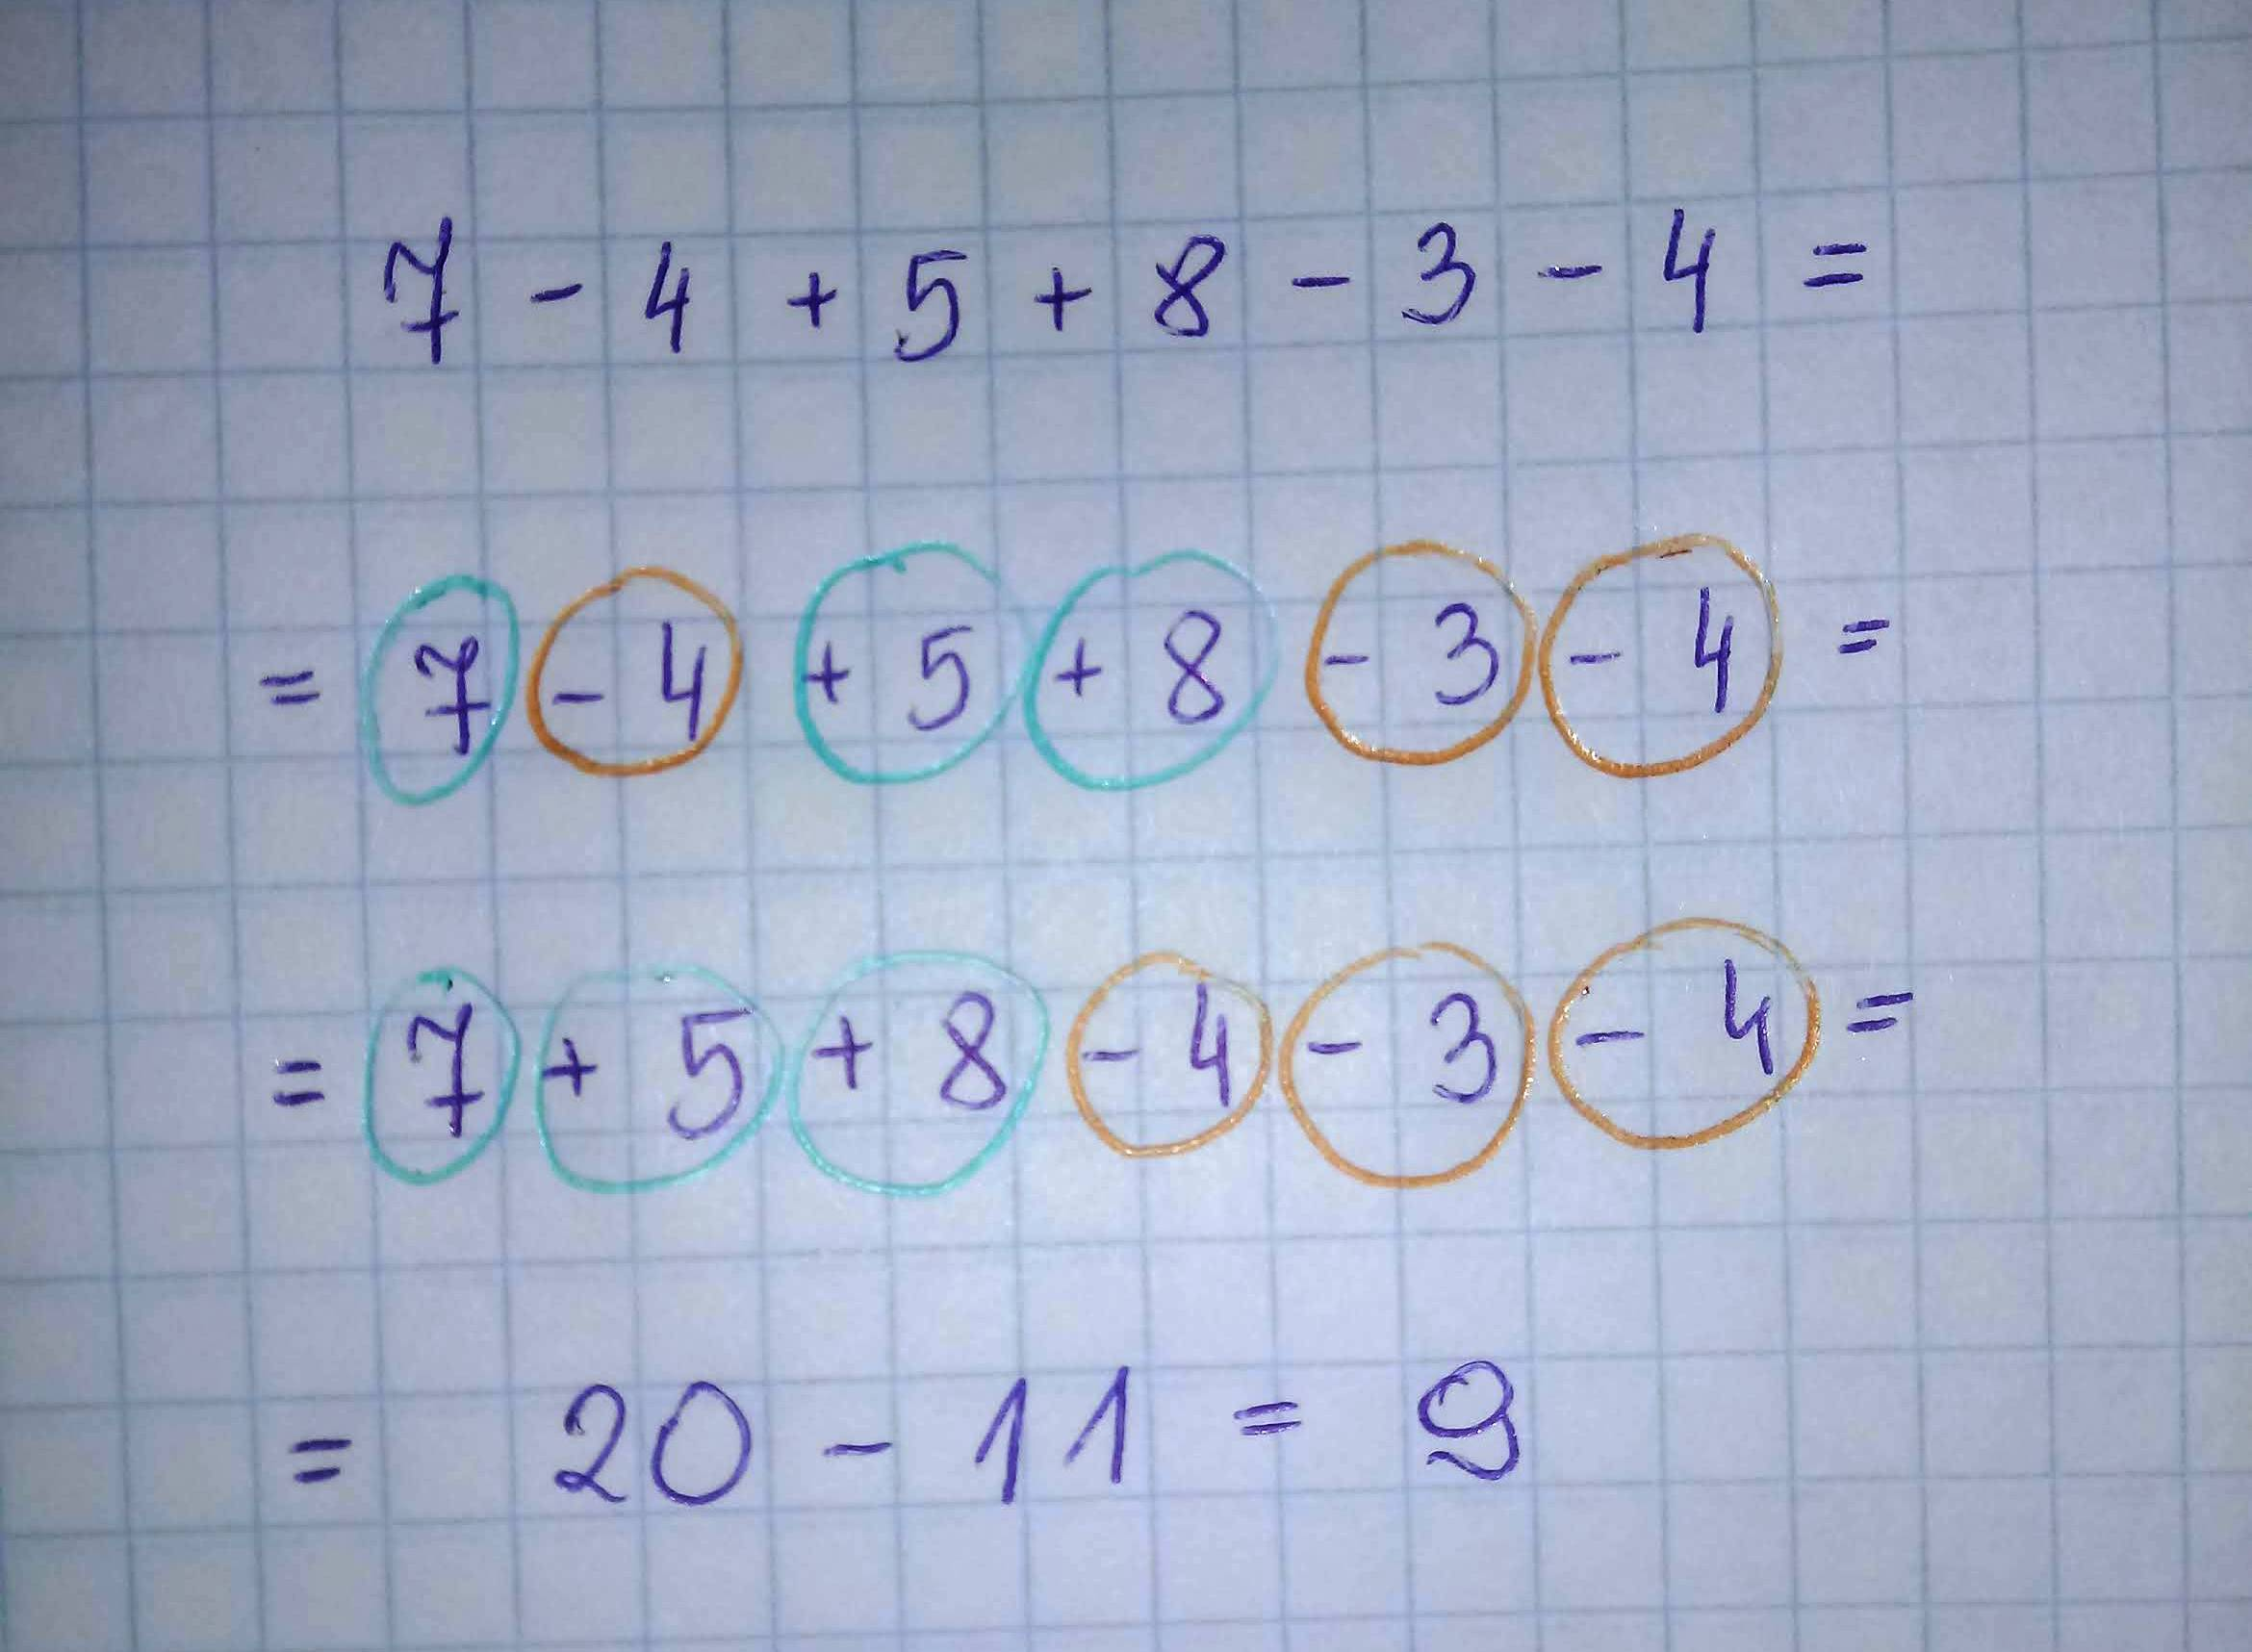 7 - 4 + 5 + 8 - 3 - 4 =
= 7 - 4 + 5 + 8 - 3 - 4 =
= 7 + 5 + 8 - 4 - 3 - 4 =
= 20 - 11 = 9